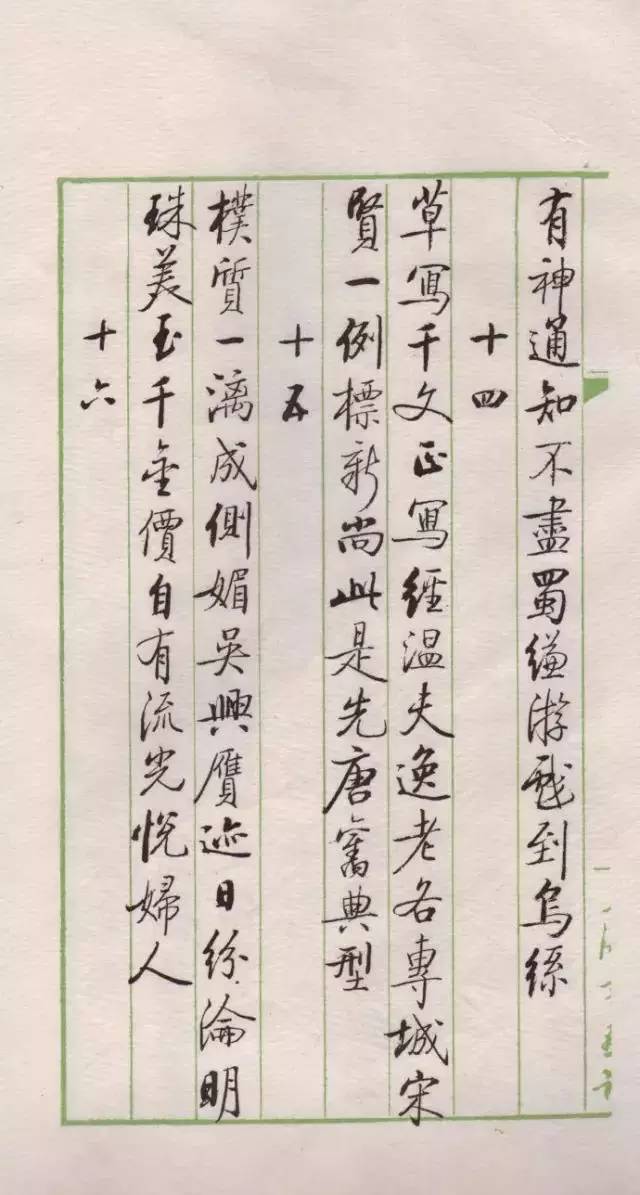 有神通知不盡蜀縑游戲到烏絲
十四
草寫千文正寫經温夫逸老各專城宋
賢一例標新尚此是先唐舊典型
十五
樸質一漓成側媚吳興贋迹日紛淪明
珠美玉千金價自有流光悦婦人
十六